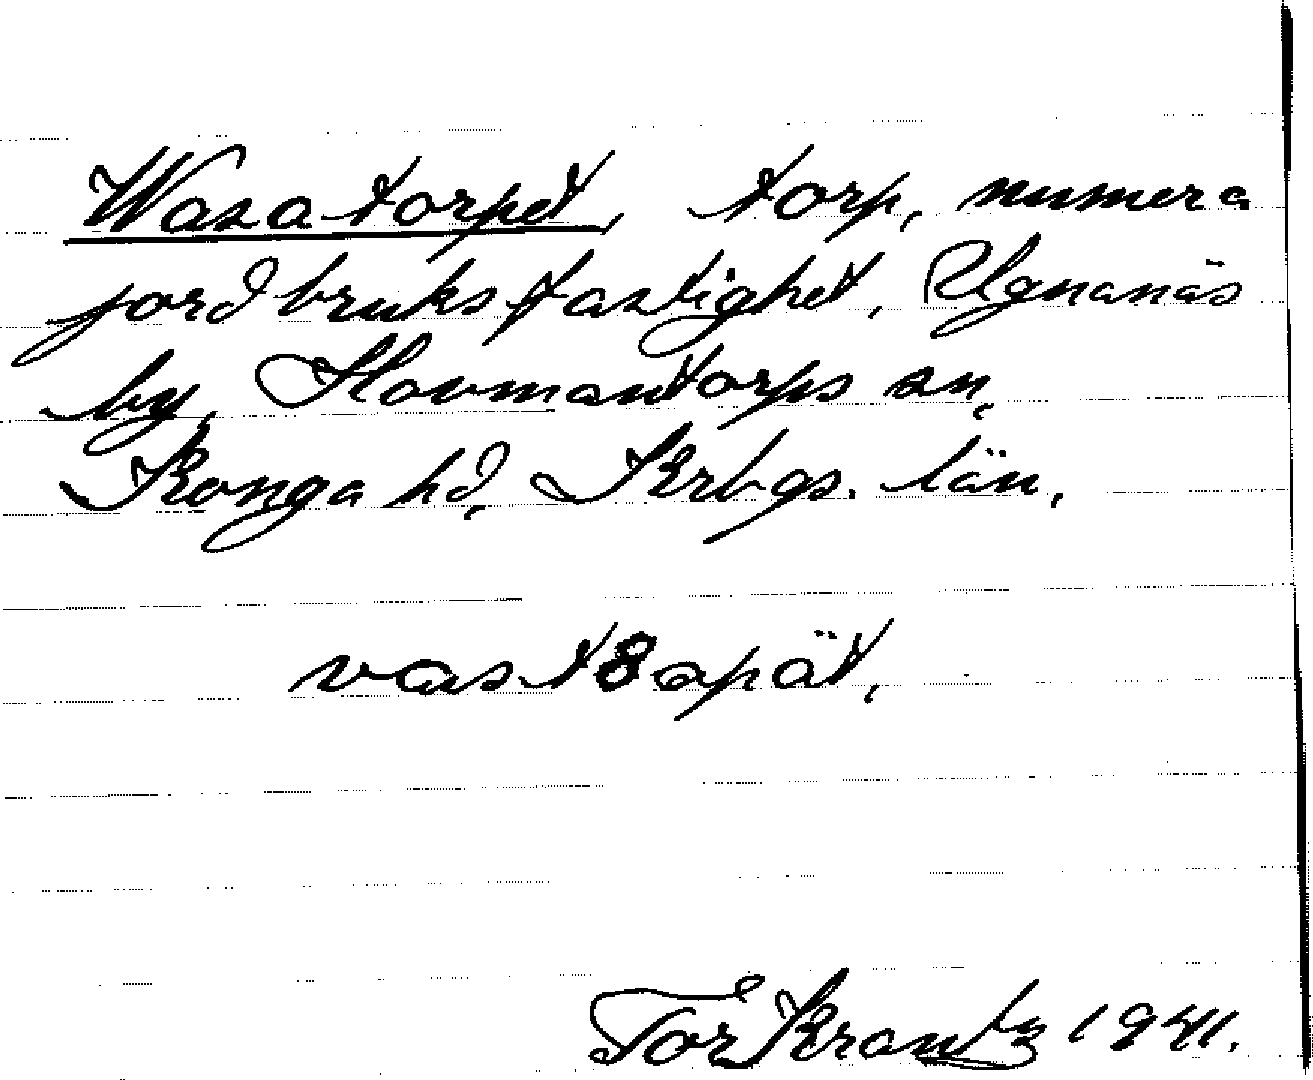 Wasatorpet, torp, numera
jordbruksfastighet, Ugnanäs
by, Hovmantorps sn,
Konga hd, Krbgs. län,
Tor Krantz 1941.